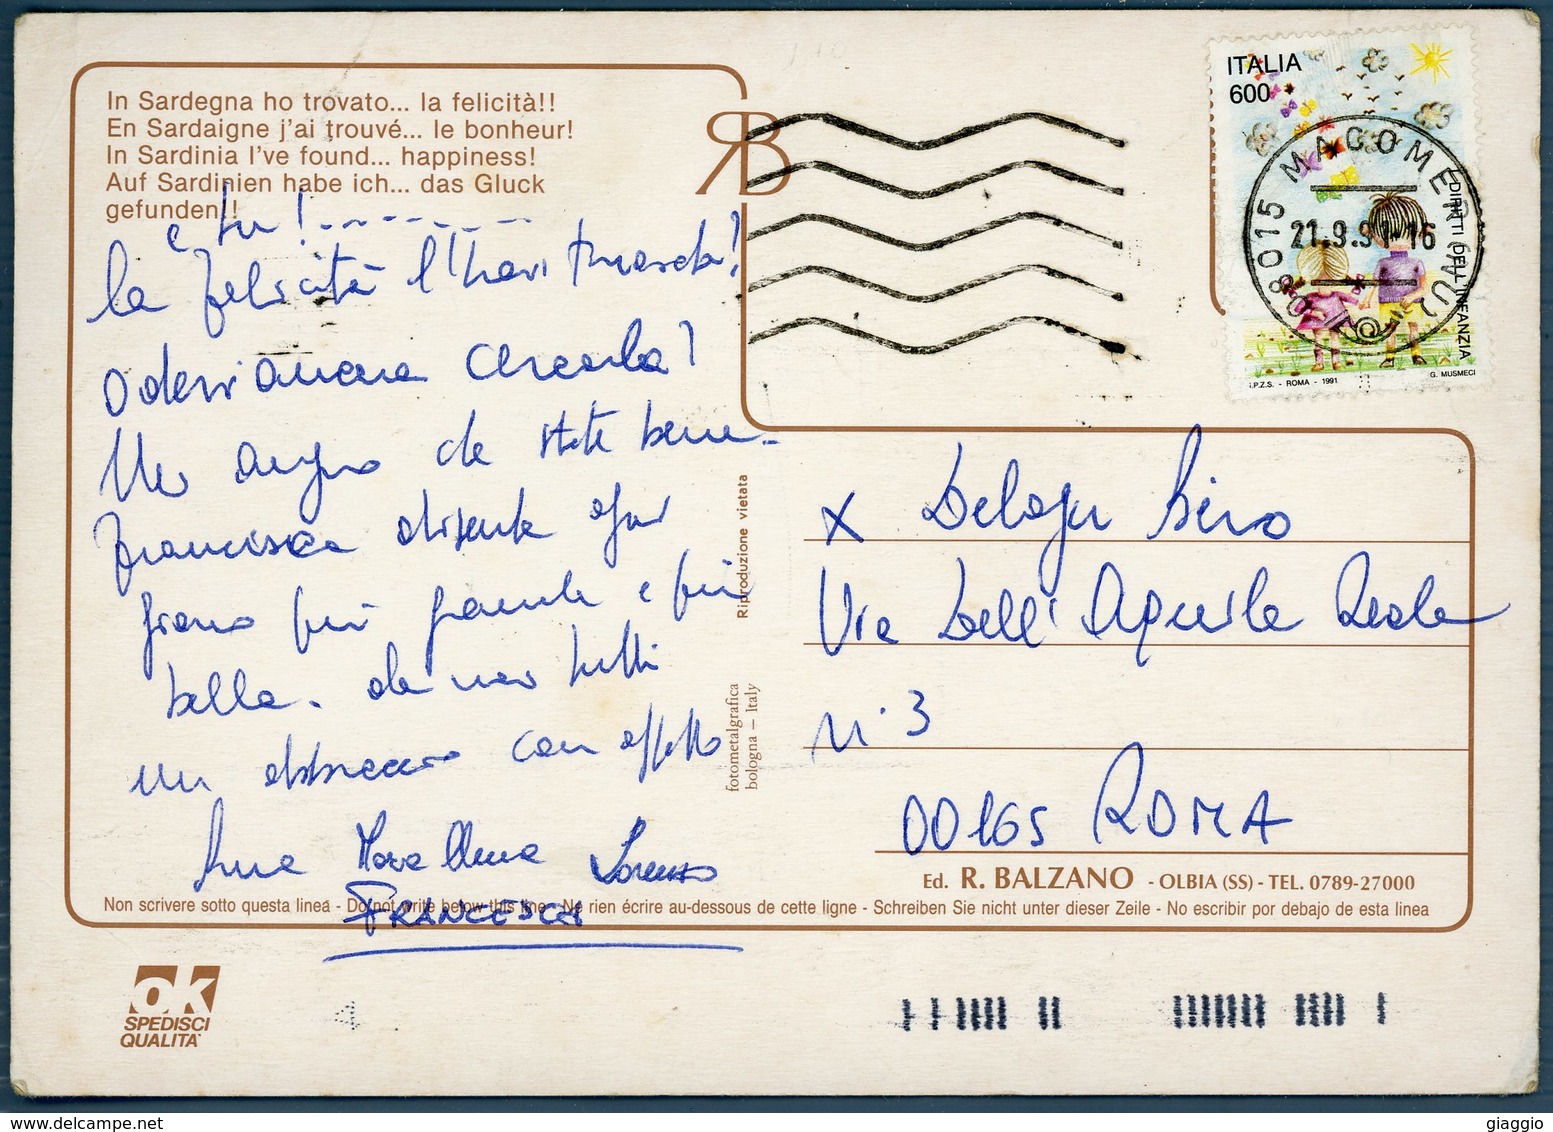 In Sardegna ho trovato... la felicità!!
En Sardaigne j'ai trouvé... le bonheur!
In Sardinia I've found... happiness!
Auf Sardinien habe ich... das Gluck
gefunden!!
e tu!--------
la felicità l'hai trovata?
o devi ancora cercarla?
Mi auguro che state bene.
Francesca diventa ogni
giorno più grande e più
bella. da noi tutti
un abbraccio con affetto
Maria Anna Lorenzo
FRANCESCA
RB
ITALIA
600
DIRITTI DELL'INFANZIA
I.P.Z.S. - ROMA - 1991
G. MUSMECI
08015 MACOMER (NU)
21.9.91-16
Riproduzione vietata
fotometalgrafica
bologna – Italy
x Delogu Piero
Via Dell'Aquila Reale
n. 3
00165 ROMA
Ed. R. BALZANO - OLBIA (SS) - TEL. 0789-27000
Non scrivere sotto questa linea - Do not write below this line - Ne rien écrire au-dessous de cette ligne - Schreiben Sie nicht unter dieser Zeile - No escribir por debajo de esta linea
OK
SPEDISCI
QUALITA'
giaggio